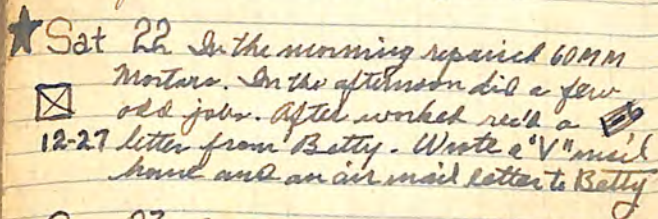 Sat 22 In the morning repaired 60MM
Mortars. In the afternoon did a few
odd jobs. After worked rec'd a
12-27 letter from Betty. Wrote a "V" mail
home and an air mail letter to Betty